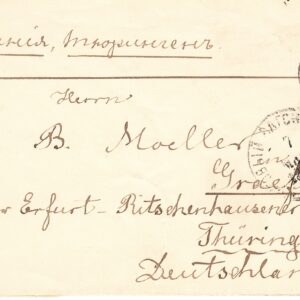 ния, Тюрингенъ.
Herrn
B. Moeller
in
r Erfurt-Ritschenhausener
Thüring
Deutschlan
7